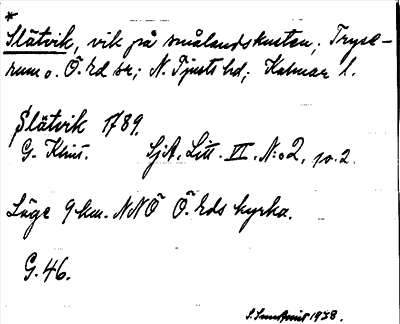 *
Slätvik, vik på smålandskusten; Tryse-
rum o. Ö. Ed snr; N. Tjusts hd; Kalmar l.
Slätvik 1789.
G. Klint. SjA. Litt. VI. N:o 2, 10.2.
Läge 9 km. NNÖ Ö. Eds kyrka.
G. 46.
1978.